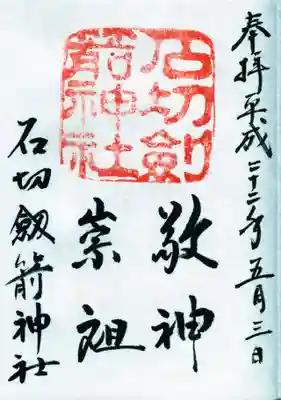 奉拝 平成二十二年五月三日
石切劔
箭神社
敬神
崇祖
石切劔箭神社